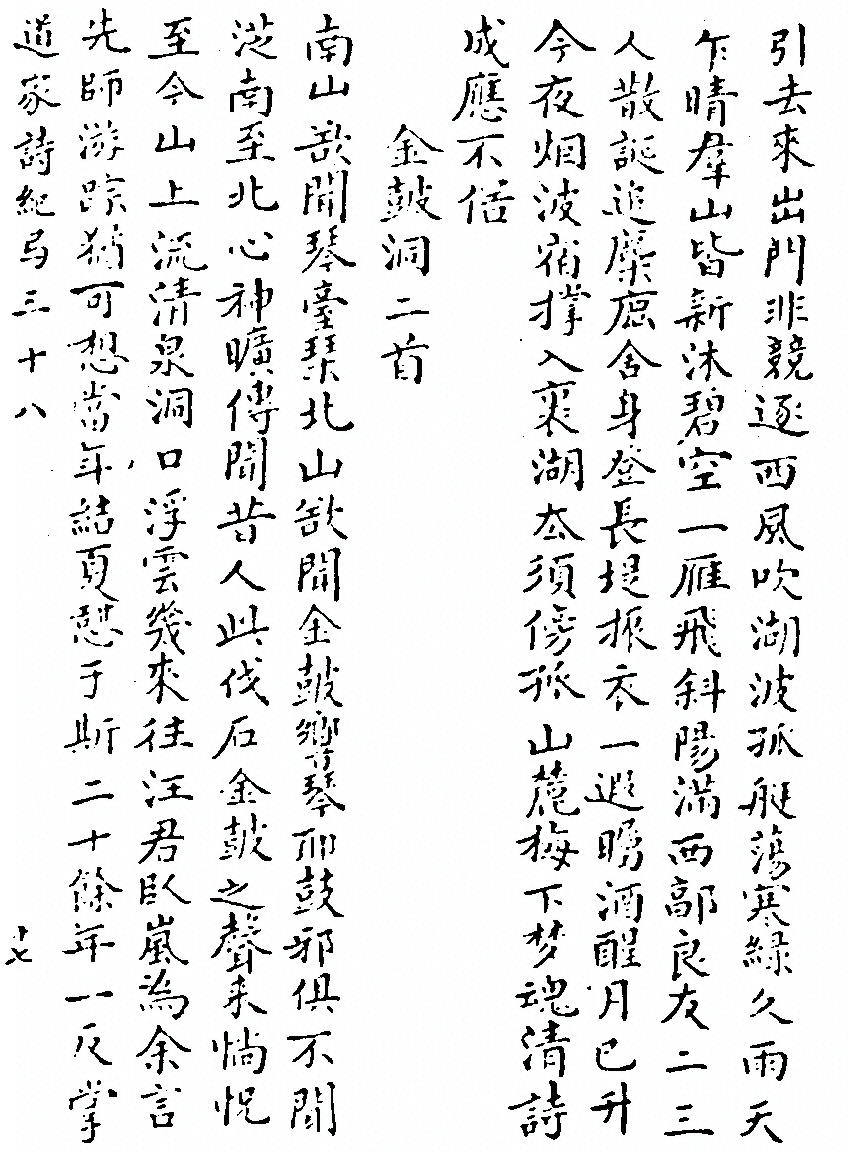 引去來出門非競逐西風吹湖波孤艇蕩寒綠久雨天
乍晴羣山皆新沐碧空一雁飛斜陽滿西郭良友二三
人散誕追麋鹿舍身登長堤振衣一遐矚酒醒月已升
今夜烟波宿撑入裏湖去須傍孤山麓梅下梦魂清詩
成應不俗
金鼓洞二首
南山欲聞琴臺琹北山欲聞金鼓響琴耶鼓邪俱不聞
從南至北心神曠傳聞昔人此伐石金鼓之聲来惝怳
至今山上流清泉洞口浮雲幾來往汪君臥嵐為余言
先師游踪猶可想當年結夏憩于斯二十餘年一反掌
道家詩紀弓三十八
十七